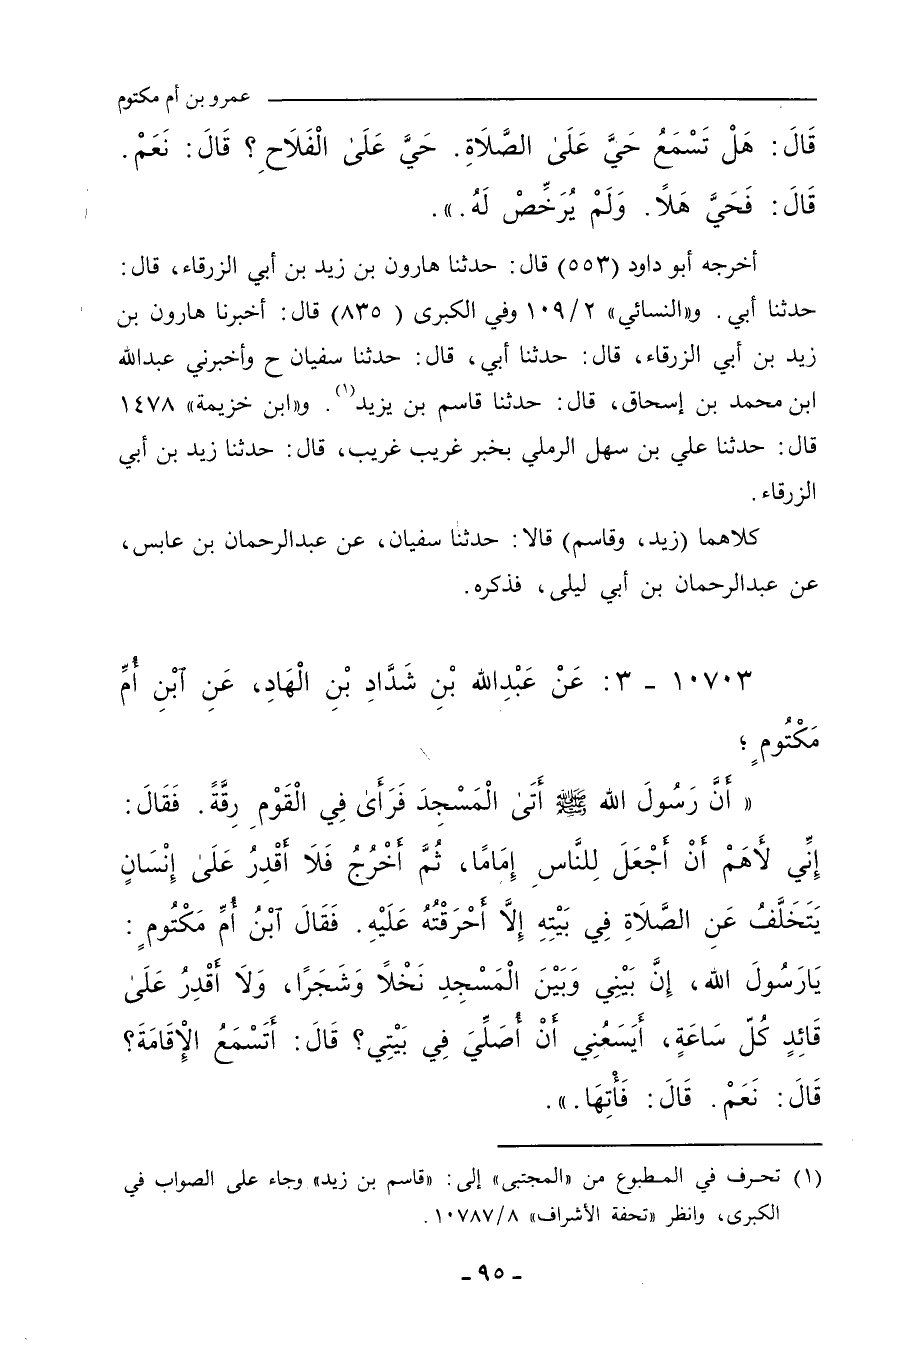 عمرو بن أم مكتوم
قَالَ: هَلْ تَسْمَعُ حَيَّ عَلَىٰ الصَّلَاةِ. حَيَّ عَلَىٰ الْفَلَاحِ؟ قَالَ: نَعَمْ.
قَالَ: فَحَيَّ هَلًا. وَلَمْ يُرَخِّصْ لَهُ.».
أخرجه أبو داود (٥٥٣) قال: حدثنا هارون بن زيد بن أبي الزرقاء، قال:
حدثنا أبي. و«النسائي» ١٠٩/٢ وفي الكبرى ( ٨٣٥) قال: أخبرنا هارون بن
زيد بن أبي الزرقاء، قال: حدثنا أبي، قال: حدثنا سفيان ح وأخبرني عبدالله
ابن محمد بن إسحاق، قال: حدثنا قاسم بن يزيد(١). و«ابن خزيمة» ١٤٧٨
قال: حدثنا علي بن سهل الرملي بخبر غريب غريب، قال: حدثنا زيد بن أبي
الزرقاء.
كلاهما (زيد، وقاسم) قالا: حدثنا سفيان، عن عبدالرحمان بن عابس،
عن عبدالرحمان بن أبي ليلى، فذكره.
١٠٧٠٣ - ٣: عَنْ عَبْدِالله بْنِ شَدَّادِ بْنِ الْهَادِ، عَنِ ٱبْنِ أُمِّ
مَكْتُومٍ؛
« أَنَّ رَسُولَ الله ﷺ أَتَىٰ الْمَسْجِدَ فَرَأَىٰ فِي الْقَوْمِ رِقَّةً. فَقَالَ:
إِنِّي لَأَهَمْ أَنْ أَجْعَلَ لِلنَّاسِ إِمَامًا، ثُمَّ أَخْرُجُ فَلَا أَقْدِرُ عَلَىٰ إِنْسَانٍ
يَتَخَلَّفُ عَنِ الصَّلَاةِ فِي بَيْتِهِ إِلَّا أَحْرَقْتُهُ عَلَيْهِ. فَقَالَ ٱبْنُ أُمِّ مَكْتُومٍ:
يَارَسُولَ الله، إِنَّ بَيْنِي وَبَيْنَ الْمَسْجِدِ نَخْلًا وَشَجَرًا، وَلَا أَقْدِرُ عَلَىٰ
قَائِدٍ كُلَّ سَاعَةٍ، أَيَسَعُنِي أَنْ أُصَلِّيَ فِي بَيْتِي؟ قَالَ: أَتَسْمَعُ الْإِقَامَةَ؟
قَالَ: نَعَمْ. قَالَ: فَأْتِهَا.».
(١) تحرف في المطبوع من «المجتبى» إلى: «قاسم بن زيد» وجاء على الصواب في
الكبرى، وانظر «تحفة الأشراف» ١٠٧٨٧/٨.
- ٩٥ -